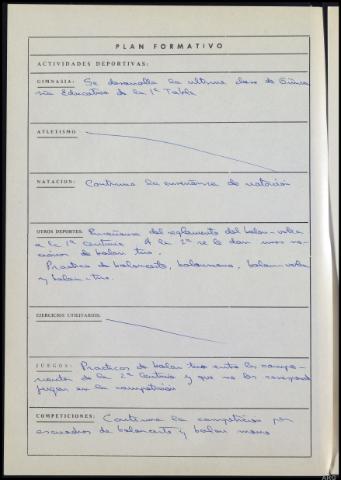 PLAN FORMATIVO
ACTIVIDADES DEPORTIVAS:
GIMNASIA: Se desarrolla la ultima clase de Gimna
sia Educativa de la 1ª Tabla
ATLETISMO
NATACION: Continua la enseñanza de natación
OTROS DEPORTES: Enseñanza del reglamento del balon-volea
a la 1ª Centuria A la 2ª se le dan unas no-
ciones de balon tiro.
Practica de baloncesto, balonmano, balon-volea
y balon-tiro.
EJERCICIOS UTILITARIOS:
JUEGOS: Practicas de balon tiro entre los compo-
nentes de la 2ª Centuria y que no les corresponde
jugar en la competición
COMPETICIONES: Continua la competición por
escuadras de baloncesto y balon mano